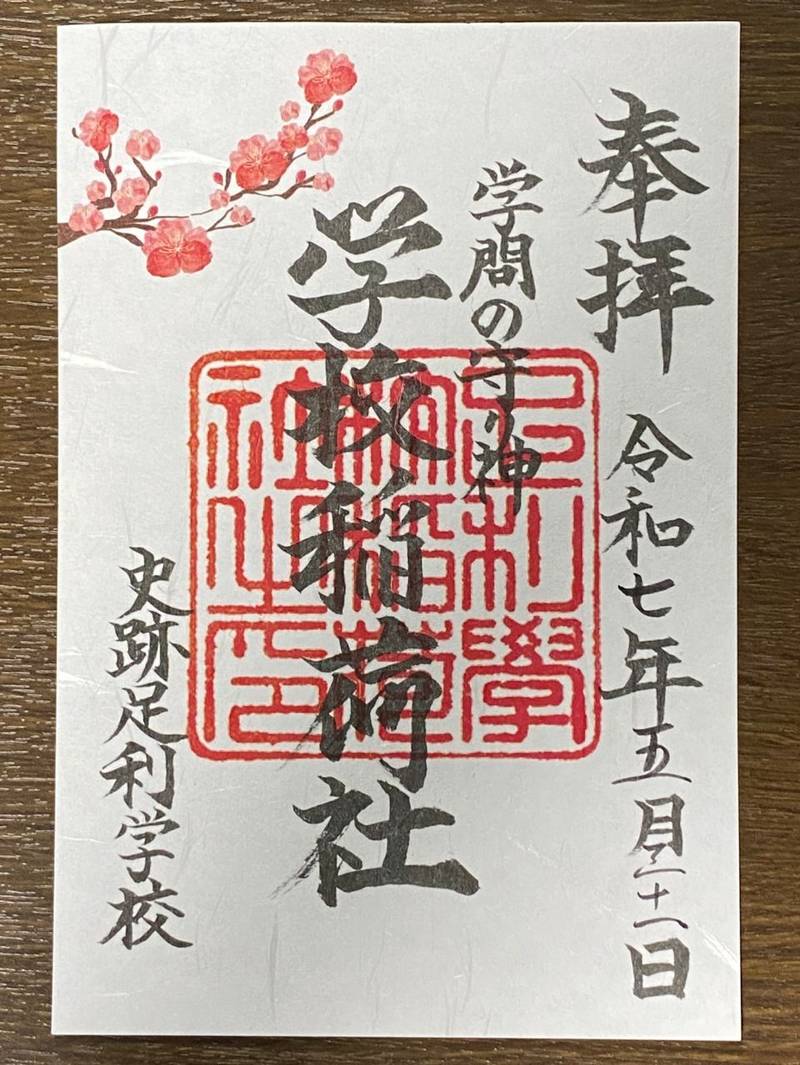 奉拝
令和七年五月三十一日
学問の守り神
学校稲荷社
史跡足利学校
足利學
校稲荷
社之印